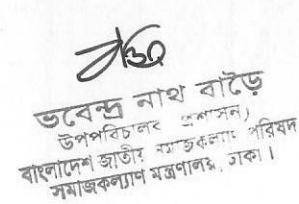 ভবেন্দ্র নাথ বাড়ৈ
উপপরিচালক (প্রশাসন)
বাংলাদেশ জাতীয় সমাজকল্যাণ পরিষদ
সমাজকল্যাণ মন্ত্রণালয়, ঢাকা।